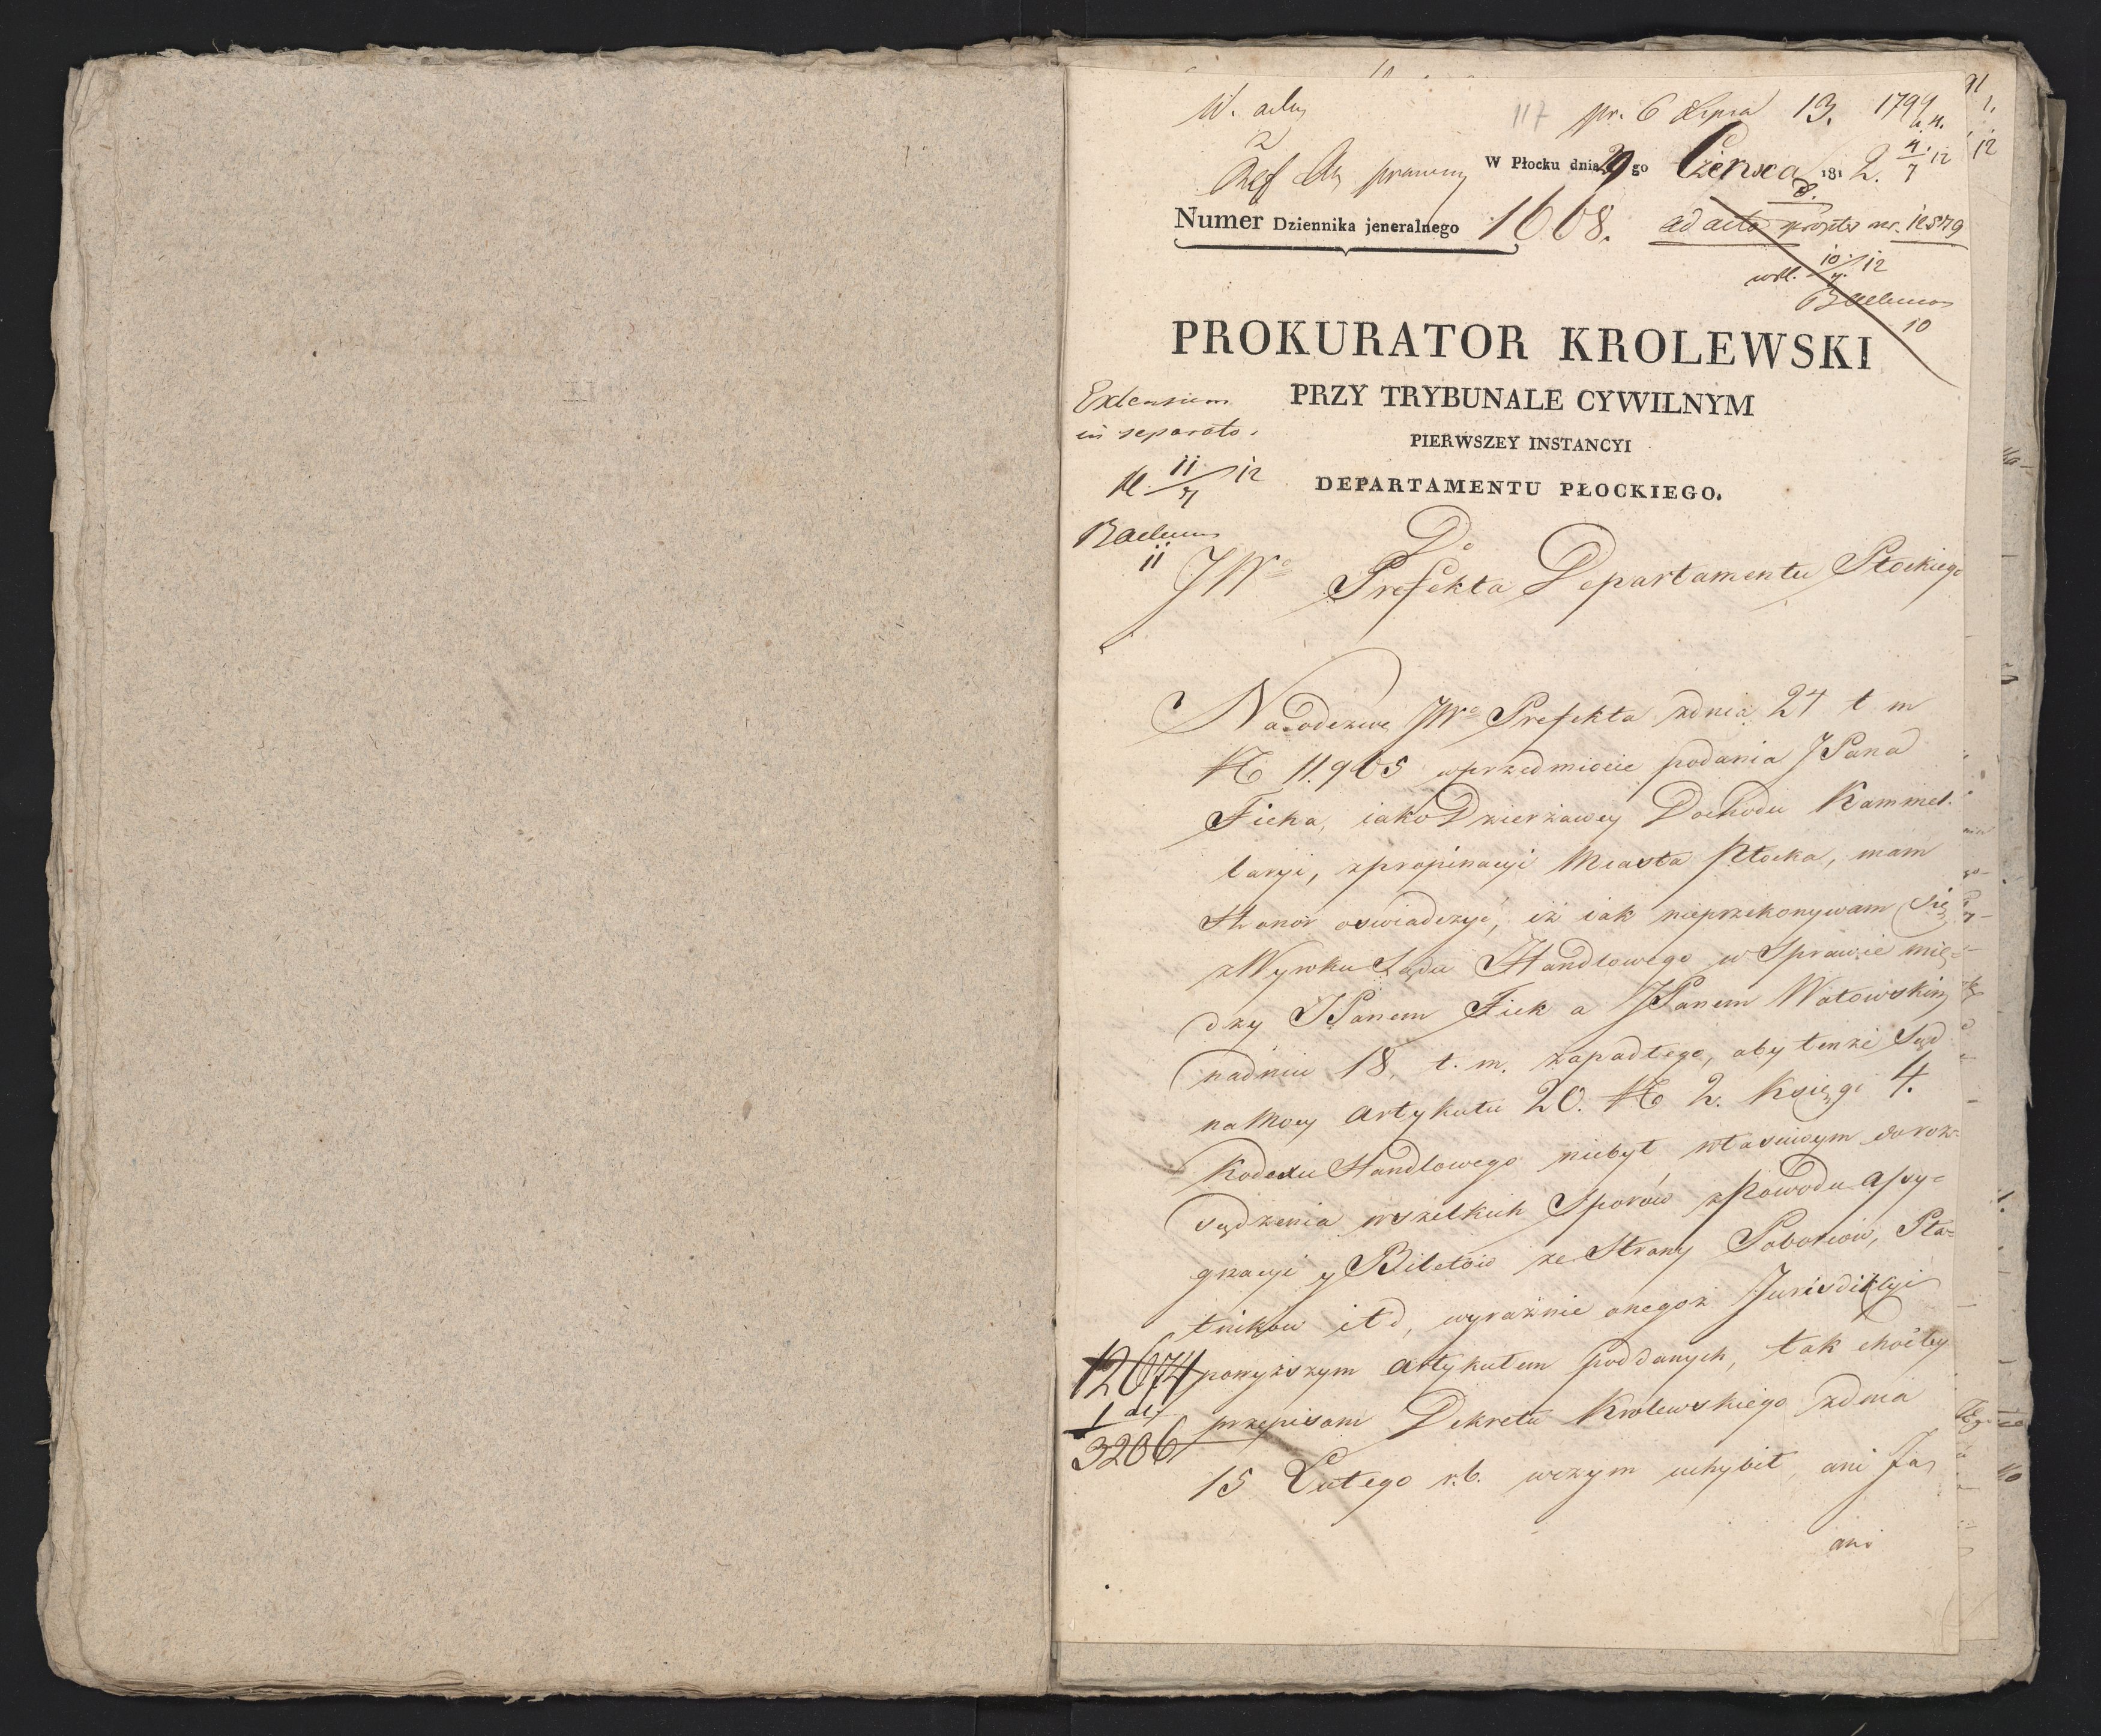 117 pr. 6 Lipca 13.
W Płocku dnia 29 go Czerwca 1812.
Numer Dziennika jeneralnego 1668.
ad acta nr. 12579
10/7 12
10
PROKURATOR KROLEWSKI
PRZY TRYBUNALE CYWILNYM
PIERWSZEY INSTANCYI
DEPARTAMENTU PŁOCKIEGO.
Extensum
in separato.
11/7 12
11
Do
JWo Prefekta Departamentu Płockiego
Na odezwę JWo Prefekta zdnia 24 t m
No 11.905 wprzedmiocie podania JPana
Ficka, iako Dzierżawcy Dochodu Kammel-
laryi, zpropinacyi Miasta Płocka, mam
Honor oswiadczyć, iż iak nieprzekonywam się
zWyroku Sądu Handlowego w Sprawie mię-
dzy JPanem Fick a JPanem Watowskim
nadniu 18. t. m. zapadłego, aby tenże Sąd
na Mocy Artykułu 20. No 2. Księgi 4.
Kodexu Handlowego niebył właściwym do roz-
sądzenia wszelkich Sporów zPowodu assy-
gnacyi y Biletów ze Strony Poborców, Pła-
tników itd, wyraźnie onegoż Jurisdikcyi
powyższym Artykułem poddanych, tak choćby
przepisom Dekretu Krolewskiego zdnia
15 Lutego r.b. wczym uchybił, ani Ja,
ani
12074
1 al.
3206